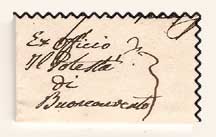 Ex Officio
Il Potestà
di
Buonconvento